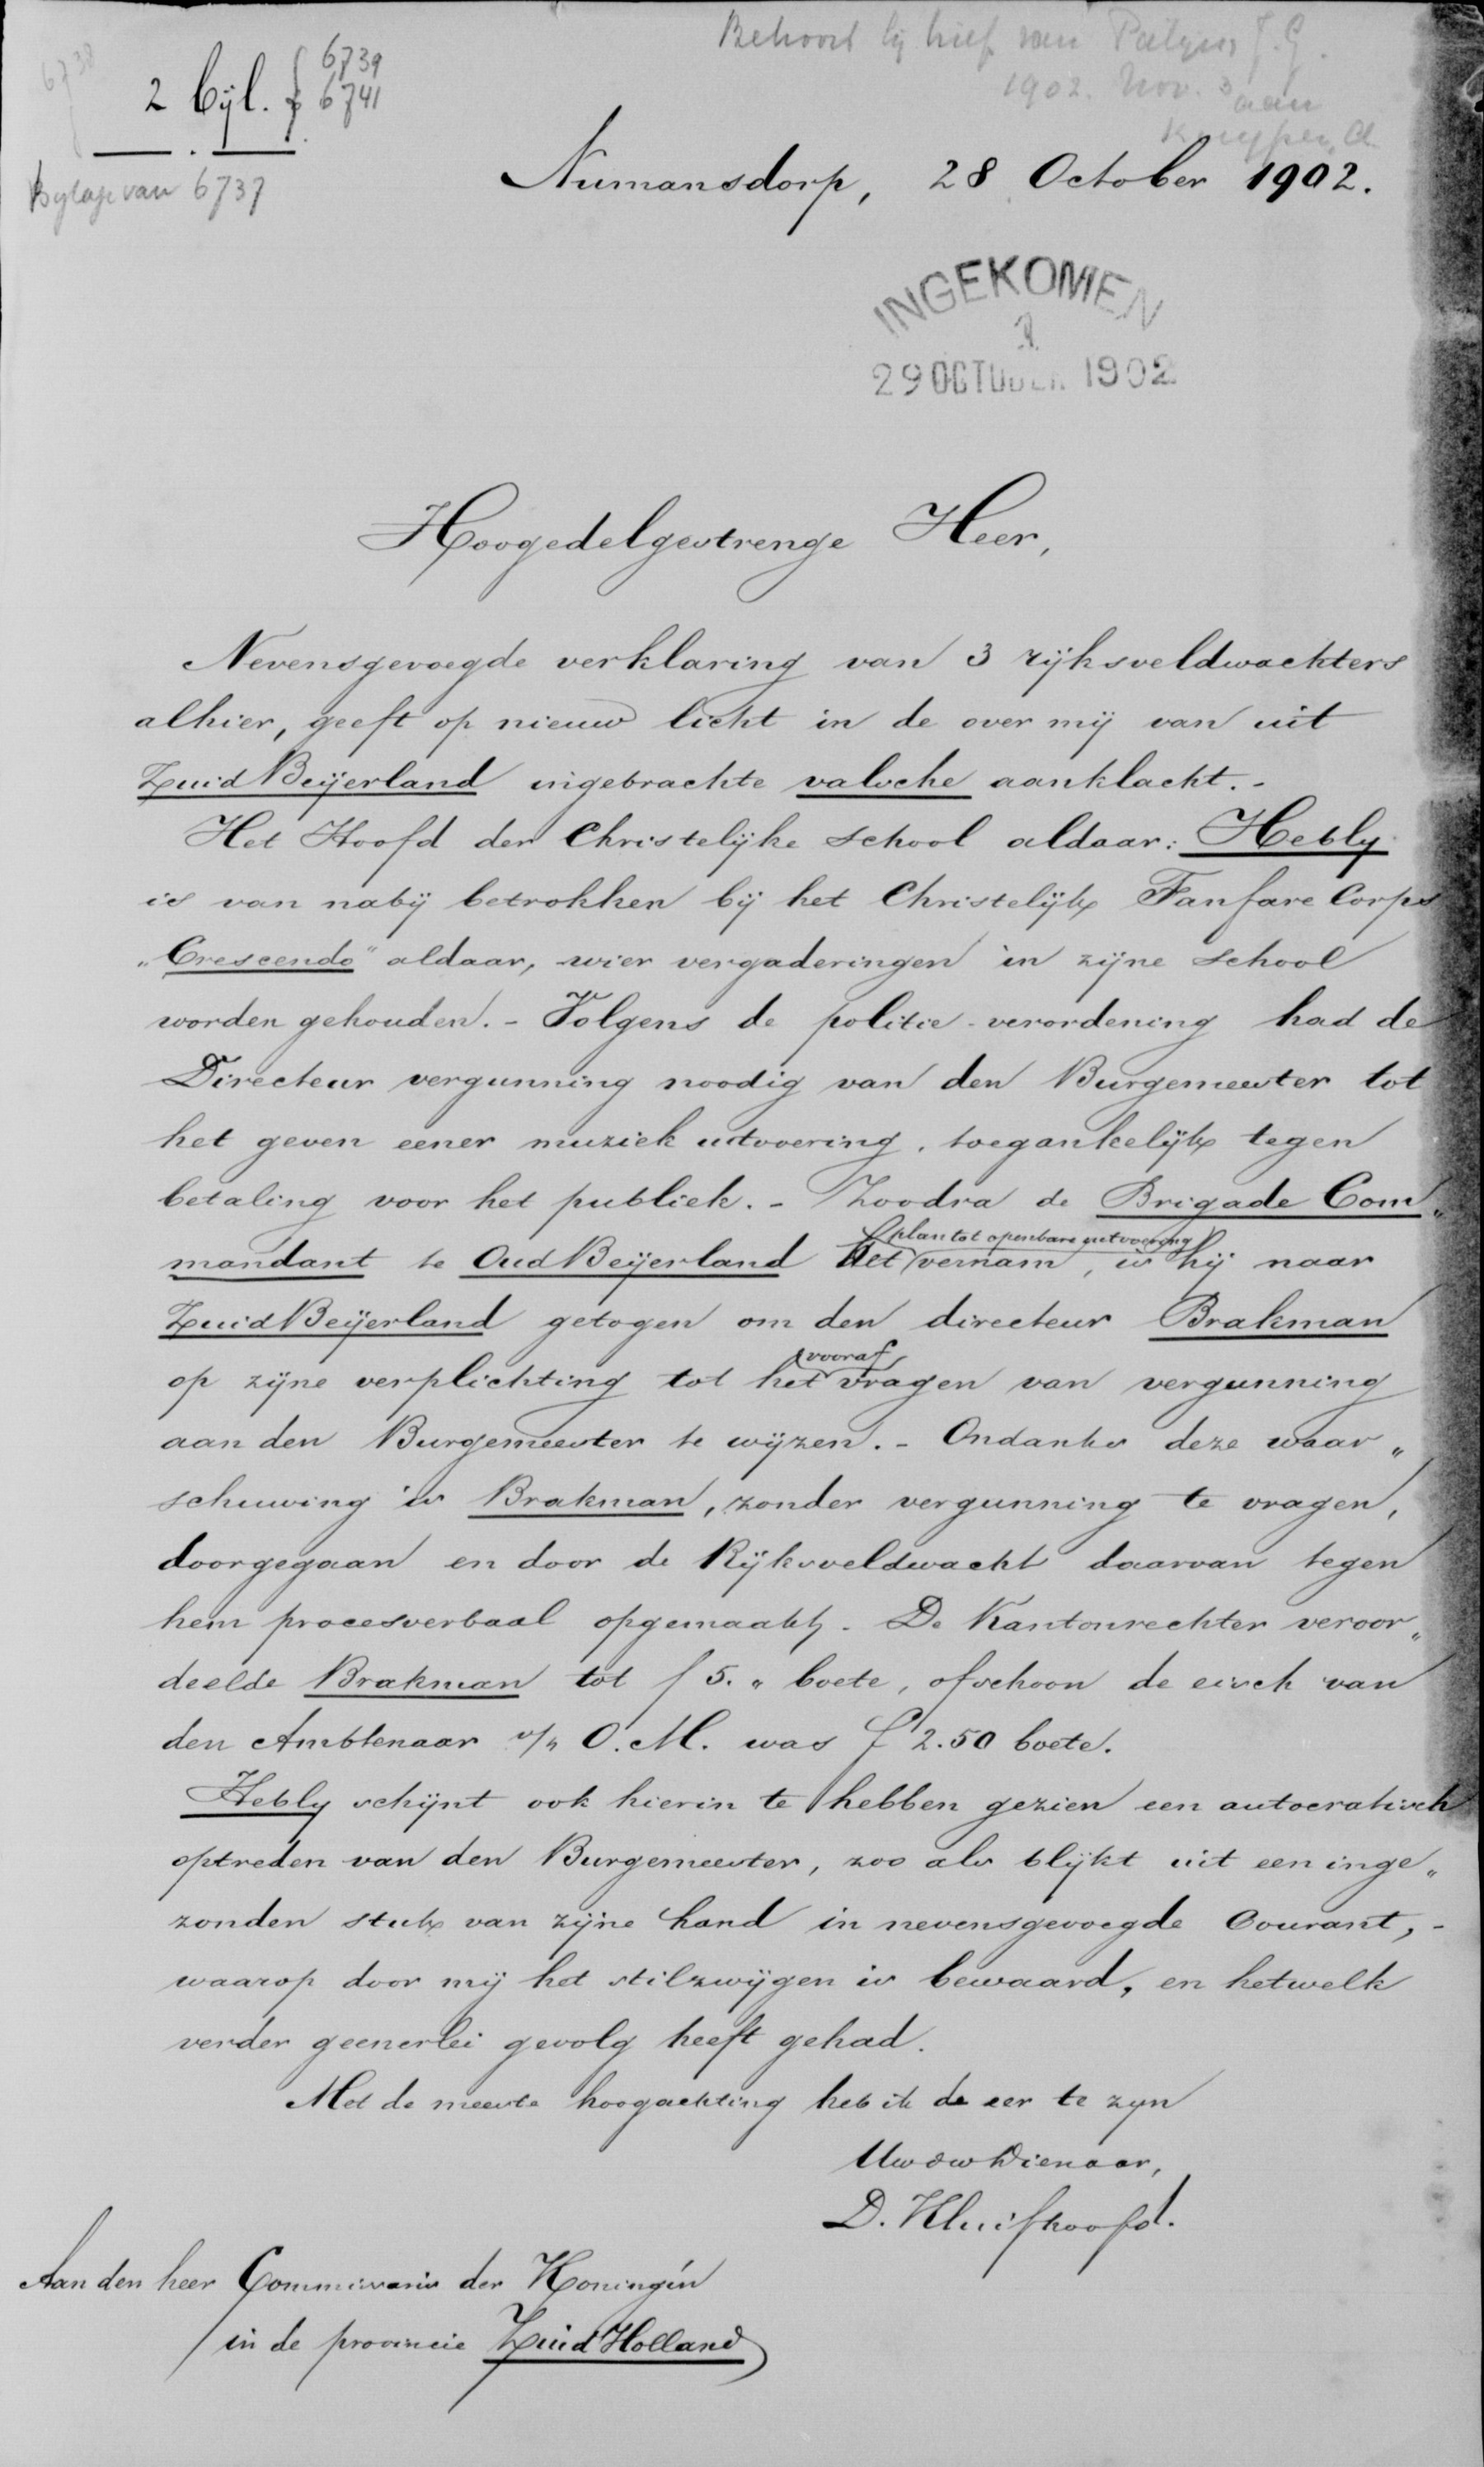 Behoort bij brief van Patijn, J.G.
1902. Nov. 3 aan
Kuyper, A.
6738
2 bijl. { 6739
6741
Bijlage van 6737
Numansdorp, 28 October 1902.
INGEKOMEN
29 OCTOBER 1902
Hoogedelgestrenge Heer,
Nevensgevoegde verklaring van 3 rijksveldwachters
alhier, geeft op nieuw licht in de over mij van uit
Zuid Beijerland ingebrachte valsche aanklacht. -
Het Hoofd der Christelijke School aldaar: Hebly
is van nabij betrokken bij het Christelijk Fanfare Corps
"Crescendo" aldaar, wier vergaderingen in zijne School
worden gehouden. - Volgens de politie-verordening had de
Directeur vergunning noodig van den Burgemeester tot
het geven eener muziek uitvoering, toegankelijk tegen
betaling voor het publiek. - Zoodra de Brigade Com„
plan tot openbare uitvoering
mandant te Oud Beijerland het vernam, is hij naar
Zuid Beijerland getogen om den directeur Brakman
vooraf
op zijne verplichting tot het vragen van vergunning
aan den Burgemeester te wijzen. - Ondanks deze waar„
schuwing is Brakman, zonder vergunning te vragen,
doorgegaan en door de Rijksveldwacht daarvan tegen
hem procesverbaal opgemaakt. De Kantonrechter veroor„
deelde Brakman tot f 5. „ boete, ofschoon de eisch van
den Ambtenaar v/h O.M. was f 2.50 boete.
Hebly schijnt ook hierin te hebben gezien een autocratisch
optreden van den Burgemeester, zoo als blijkt uit een inge„
zonden stuk van zijne hand in nevensgevoegde Courant, -
waarop door mij het stilzwijgen is bewaard, en hetwelk
verder geenerlei gevolg heeft gehad.
Met de meeste hoogachting heb ik de eer te zijn
Uw dw Dienaar,
D. Kluifhoofd.
Aan den heer Commissaris der Koningin
in de provincie Zuid Holland